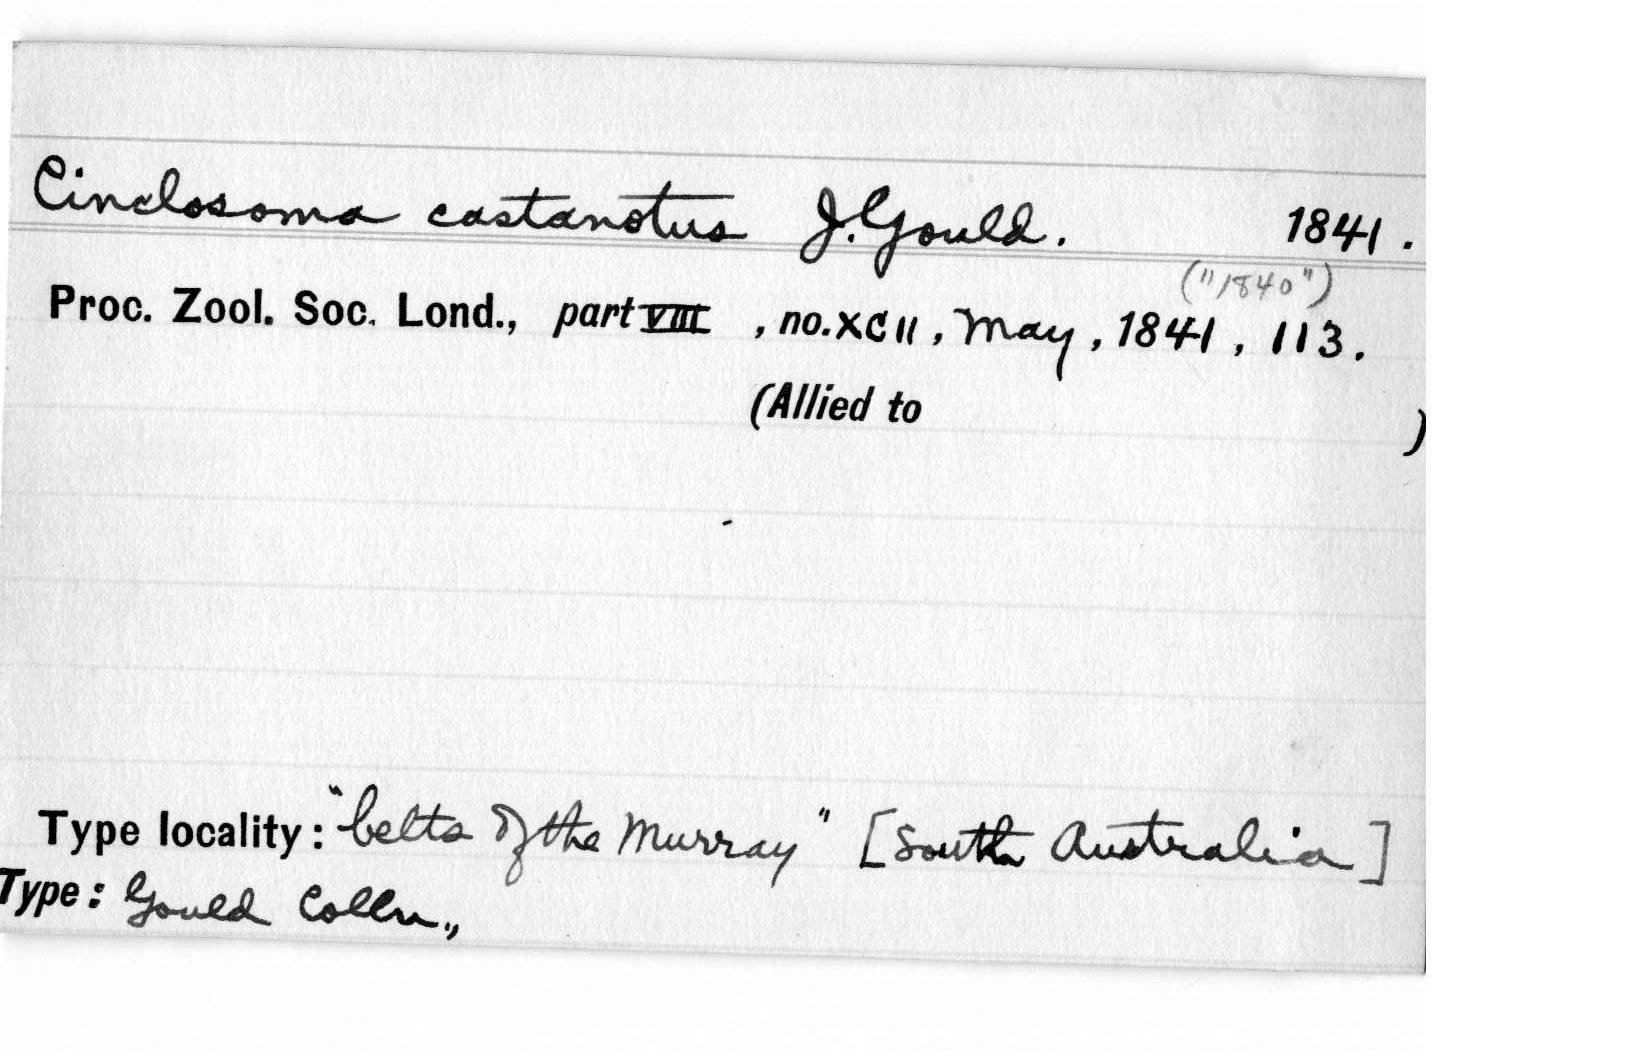 Cinclosoma castanotus J. Gould. 1841.
("1840")
Proc. Zool. Soc. Lond., part VIII, no. XCII, May, 1841, 113.
(Allied to )
Type locality: "belts of the Murray" [South Australia]
Type: Gould Colln.,